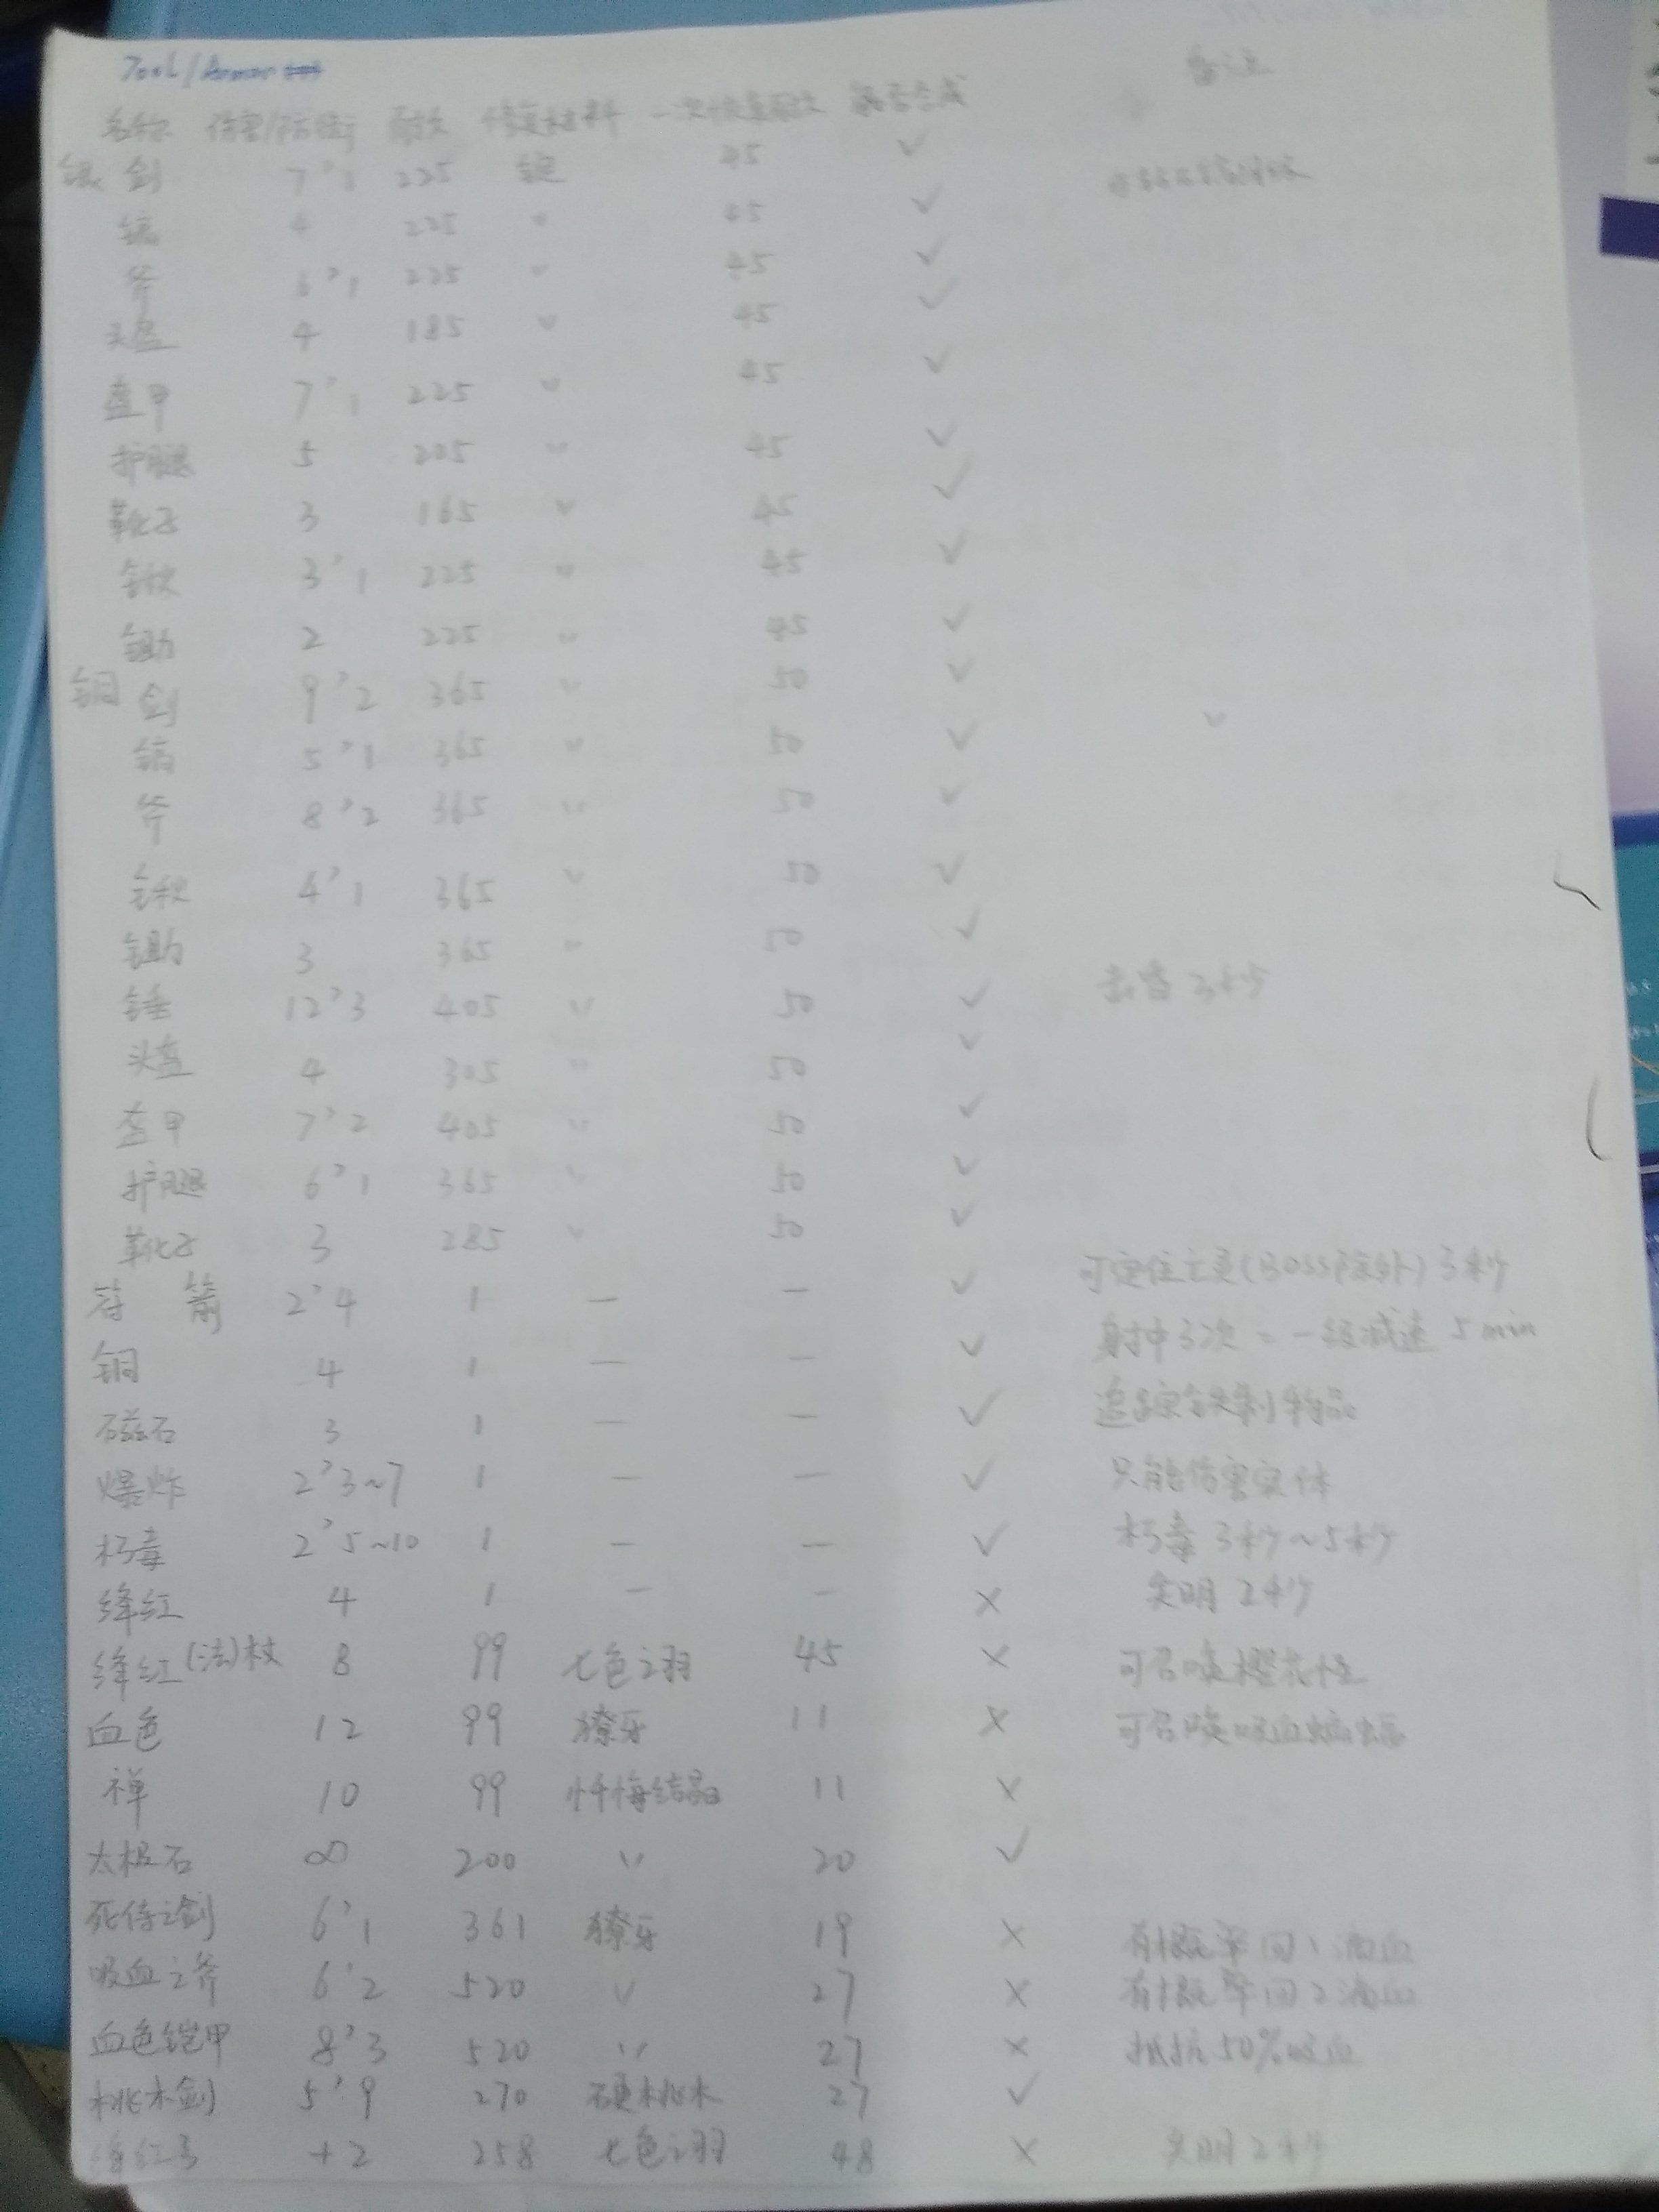 Tool/Armor
备注
名称 伤害/防御 耐久 修复材料 一次恢复耐久 能否合成
银 剑 7'1 225 锭 45 ✓
镐 4 225 〃 45 ✓
斧 6'1 225 〃 45 ✓
头盔 4 185 〃 45 ✓
盔甲 7'1 225 〃 45 ✓
护腿 5 205 〃 45 ✓
靴子 3 165 〃 45 ✓
锹 3'1 225 〃 45 ✓
锄 2 225 〃 45 ✓
铜 剑 9'2 365 〃 50 ✓ 〃
镐 5'1 365 〃 50 ✓
斧 8'2 365 〃 50 ✓
锹 4'1 365 〃 50 ✓
锄 3 365 〃 50 ✓
锤 12'3 405 〃 50 ✓ 击晕3秒
头盔 4 305 〃 50 ✓
盔甲 7'2 405 〃 50 ✓
护腿 6'1 365 〃 50 ✓
靴子 3 285 〃 50 ✓
符 箭 2'4 1 — — ✓ 可定住亡灵(BOSS除外)3秒
铜 4 1 — — ✓ 射中3次=一级减速 5min
磁石 3 1 — — ✓ 追踪铁制物品
爆炸 2'3~7 1 — — ✓ 只能伤害实体
朽毒 2'5~10 1 — — ✓ 朽毒3秒~5秒
绛红 4 1 — — × 失明2秒
绛红(法)杖 8 99 七色之羽 45 × 可召唤樱花怪
血色 12 99 獠牙 11 × 可召唤吸血蝙蝠
禅 10 99 忏悔结晶 11 ×
太极石 ∞ 200 〃 20 ✓
死侍之剑 6'1 361 獠牙 19 × 有概率回1滴血
吸血之斧 6'2 520 〃 27 × 有概率回2滴血
血色铠甲 8'3 520 〃 27 × 抵抗50%吸血
桃木剑 5'9 270 硬桃木 27 ✓
绛红弓 +2 258 七色之羽 48 × 失明2秒